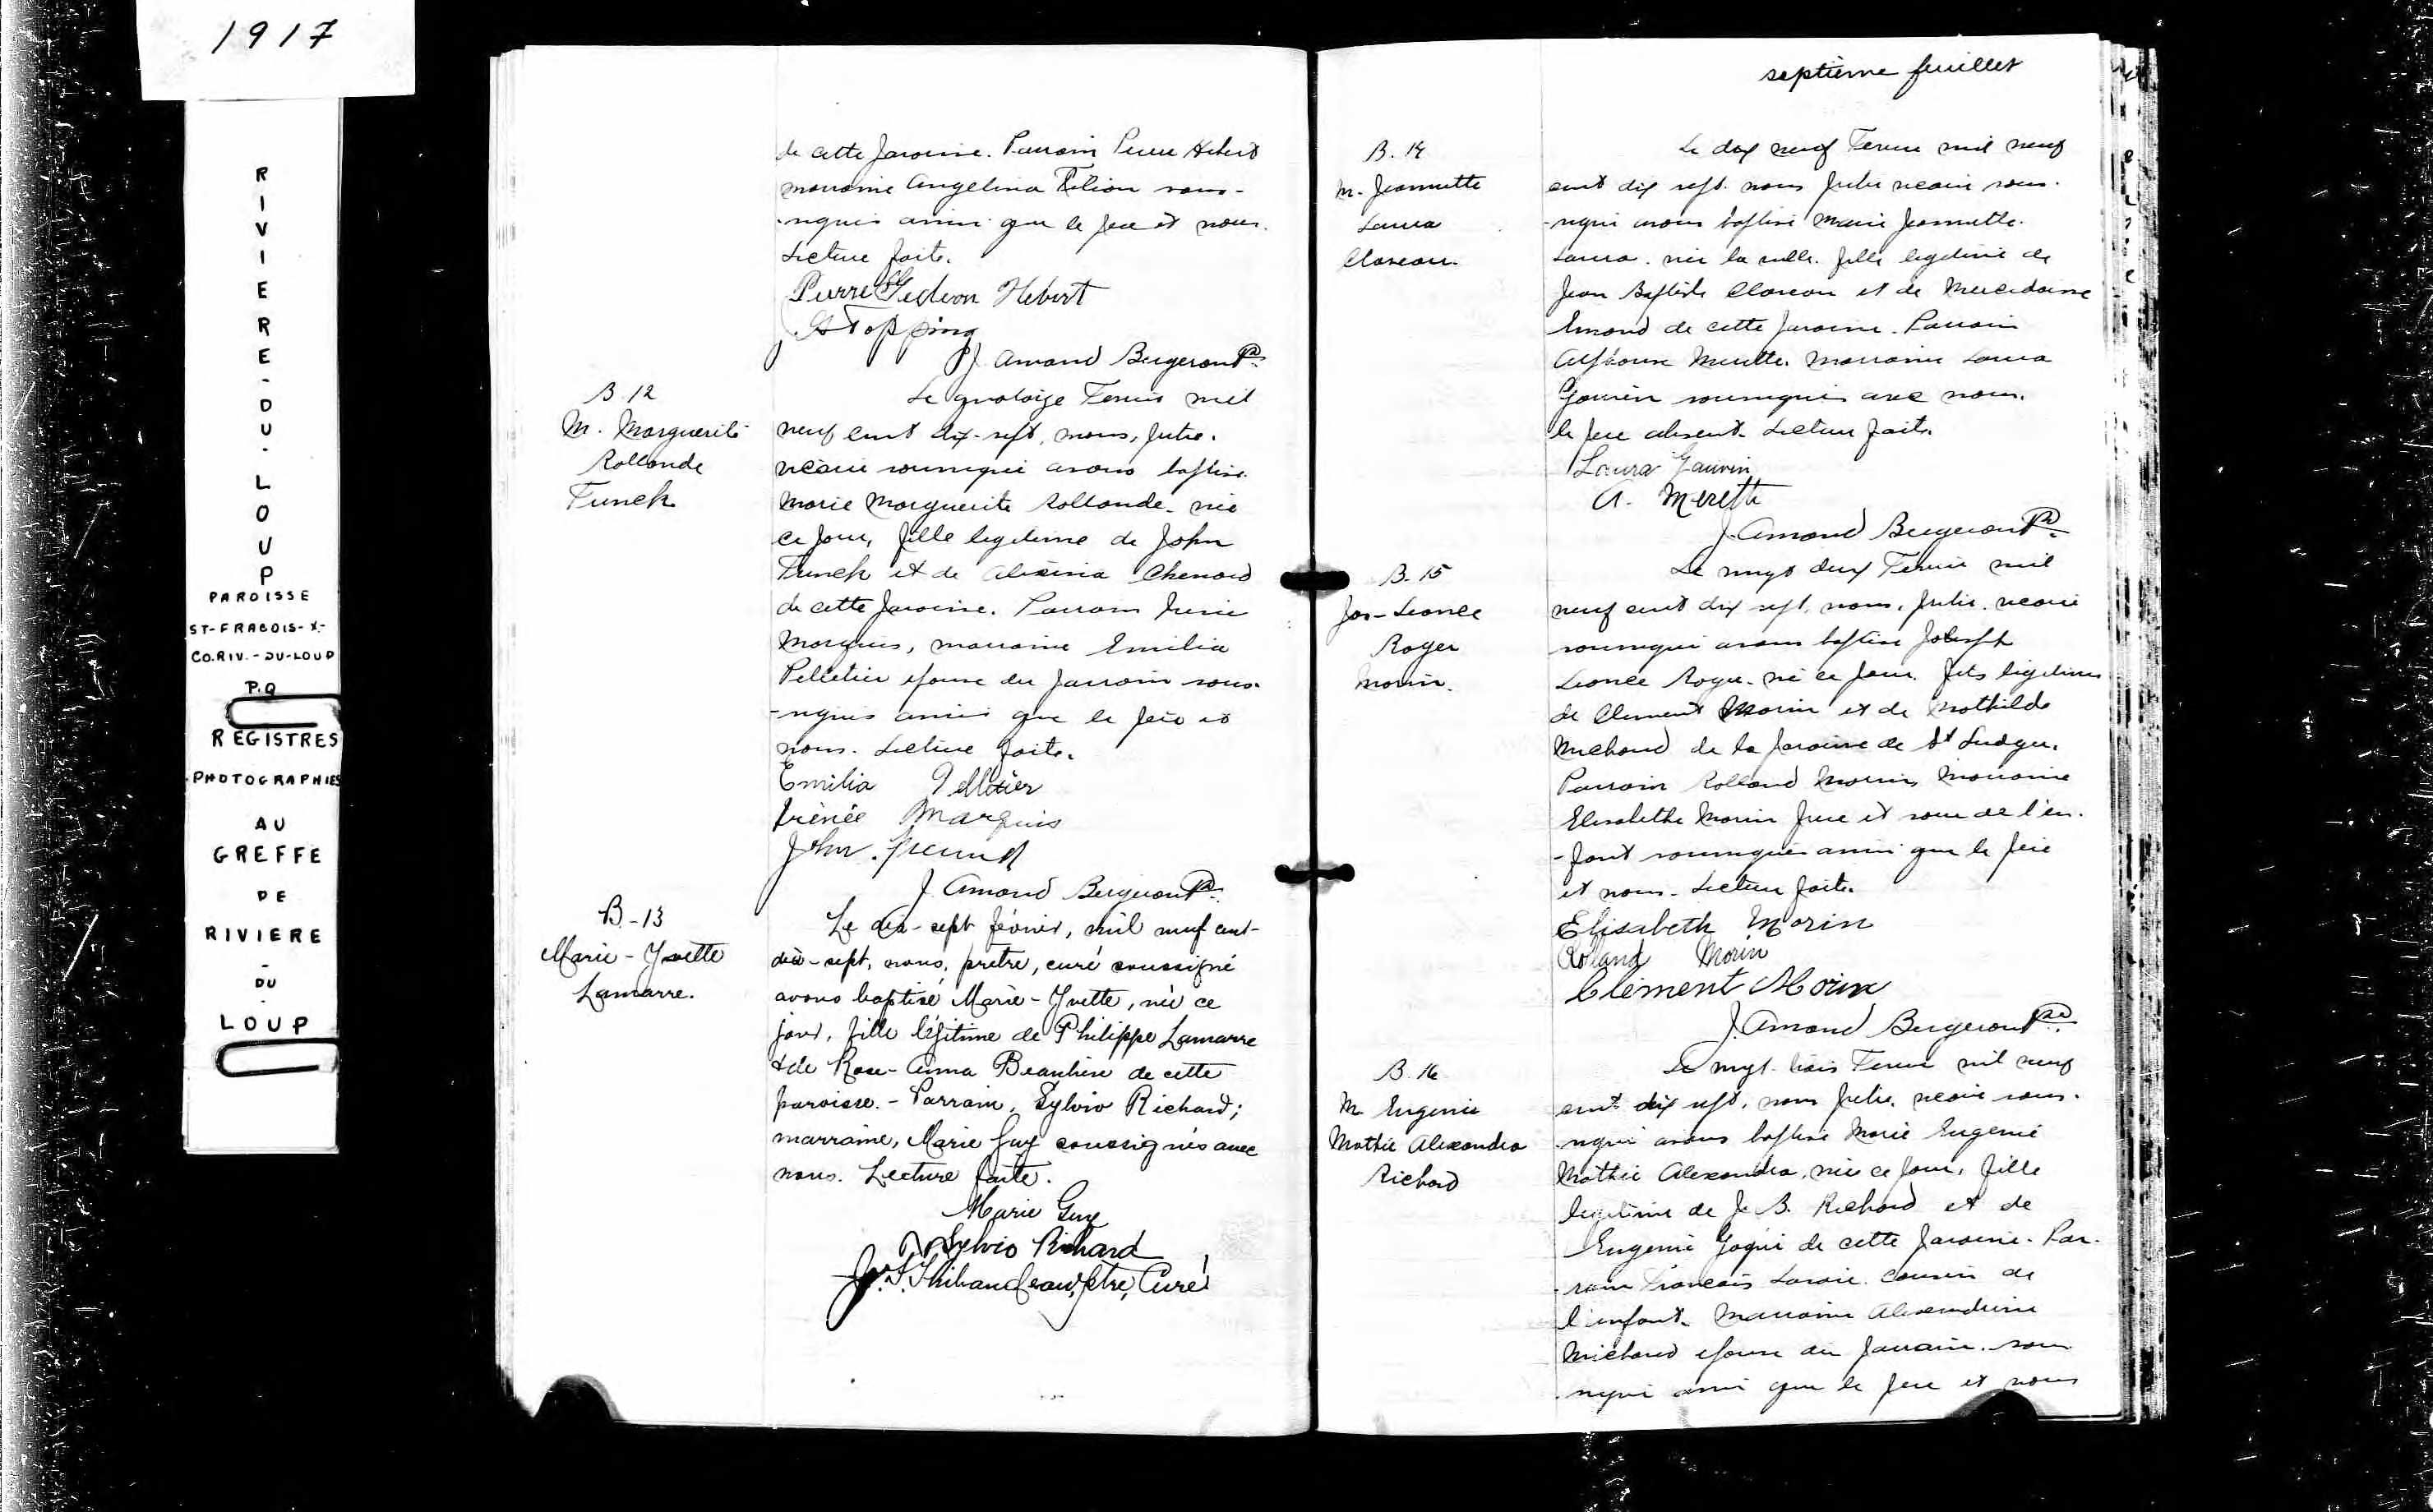 1917
RIVIERE-DU-LOUP
PAROISSE
ST-FRACOIS-X-
CO.RIV.-DU-LOUP
P.Q
REGISTRES
PHOTOGRAPHIES
AU
GREFFE
DE
RIVIERE
-
DU
-
LOUP
de cette paroisse. Parrain Pierre Hebert
marraine Angelina Filion sous-
-signés ainsi que le père et nous.
Lecture faite.
Pierre Gedeon Hebert
J. Amand Bergeron Ptre
B 12
M. Marguerite
Rollande
Funck
Le quatorze Fevrier mil
neuf cent dix-sept, nous, prêtre.
vicaire soussigné avons baptisé
Marie Marguerite Rollande. née
ce jour, fille legitime de John
Funck et de Alexina Chenard
de cette paroisse. Parrain Irenée
Marquis, marraine Emilia
Pelletier épouse du parrain sous-
-signés ainsi que le père et
nous. Lecture faite.
Emilia Pelletier
Irénée Marquis
John Funck
J. Amand Bergeron Ptre
B-13
Marie-Yvette
Lamarre.
Le dix-sept février, mil neuf cent-
dix-sept, nous, prêtre, curé soussigné
avons baptisé Marie-Yvette, née ce
jour, fille légitime de Philippe Lamarre
& de Rose-Anna Beaulieu de cette
paroisse. - Parrain, Sylvio Richard;
marraine, Marie Guy soussignés avec
nous. Lecture faite.
Marie Guy
Sylvio Richard
J. S. Thibaudeau, ptre, Curé
septième feuillet
B. 14
M. Jeannette
Laura
Claveau.
Le dix neuf Fevrier mil neuf
cent dix sept. nous prêtre vicaire sous-
-signé avons baptisé Marie Jeannette.
Laura. née la veille. fille legitime de
Jean Baptiste Claveau et de
Emond de cette paroisse. Parrain
Alphonse Merette. Marraine Laura
Gauvin soussignés avec nous.
le père absent. Lecture faite.
Laura Gauvin
A. Merette
J. Amand Bergeron Ptre
B-15
Jos-Leonce
Roger
Morin.
Le vingt deux Fevrier mil
neuf cent dix sept, nous, prêtre. vicaire
soussigné avons baptisé Joseph
Leonce Roger. né ce jour. fils legitime
de Clement Morin et de Mathilde
Michaud de la paroisse de St Ludger.
Parrain Rolland Morin, Marraine
Elisabethe Morin frere et soeur de l'en-
-fant soussignés ainsi que le père
et nous. Lecture faite.
Elisabeth Morin
Roland Morin
Clément Morin
J. Amand Bergeron Ptre
B. 16
M. Eugenie
Mathie Alexandra
Richard
Le vingt trois Fevrier mil neuf
cent dix sept, nous prêtre, vicaire sous-
-signé avons baptisé Marie Eugenie
Mathie Alexandra, née ce jour, fille
legitime de J. B. Richard et de
Eugenie de cette paroisse. Par-
-rain Francois Lavoie. cousin de
l'enfant. Marraine Alexandrine
Michaud épouse du parrain. sous-
-signés ainsi que le père et nous